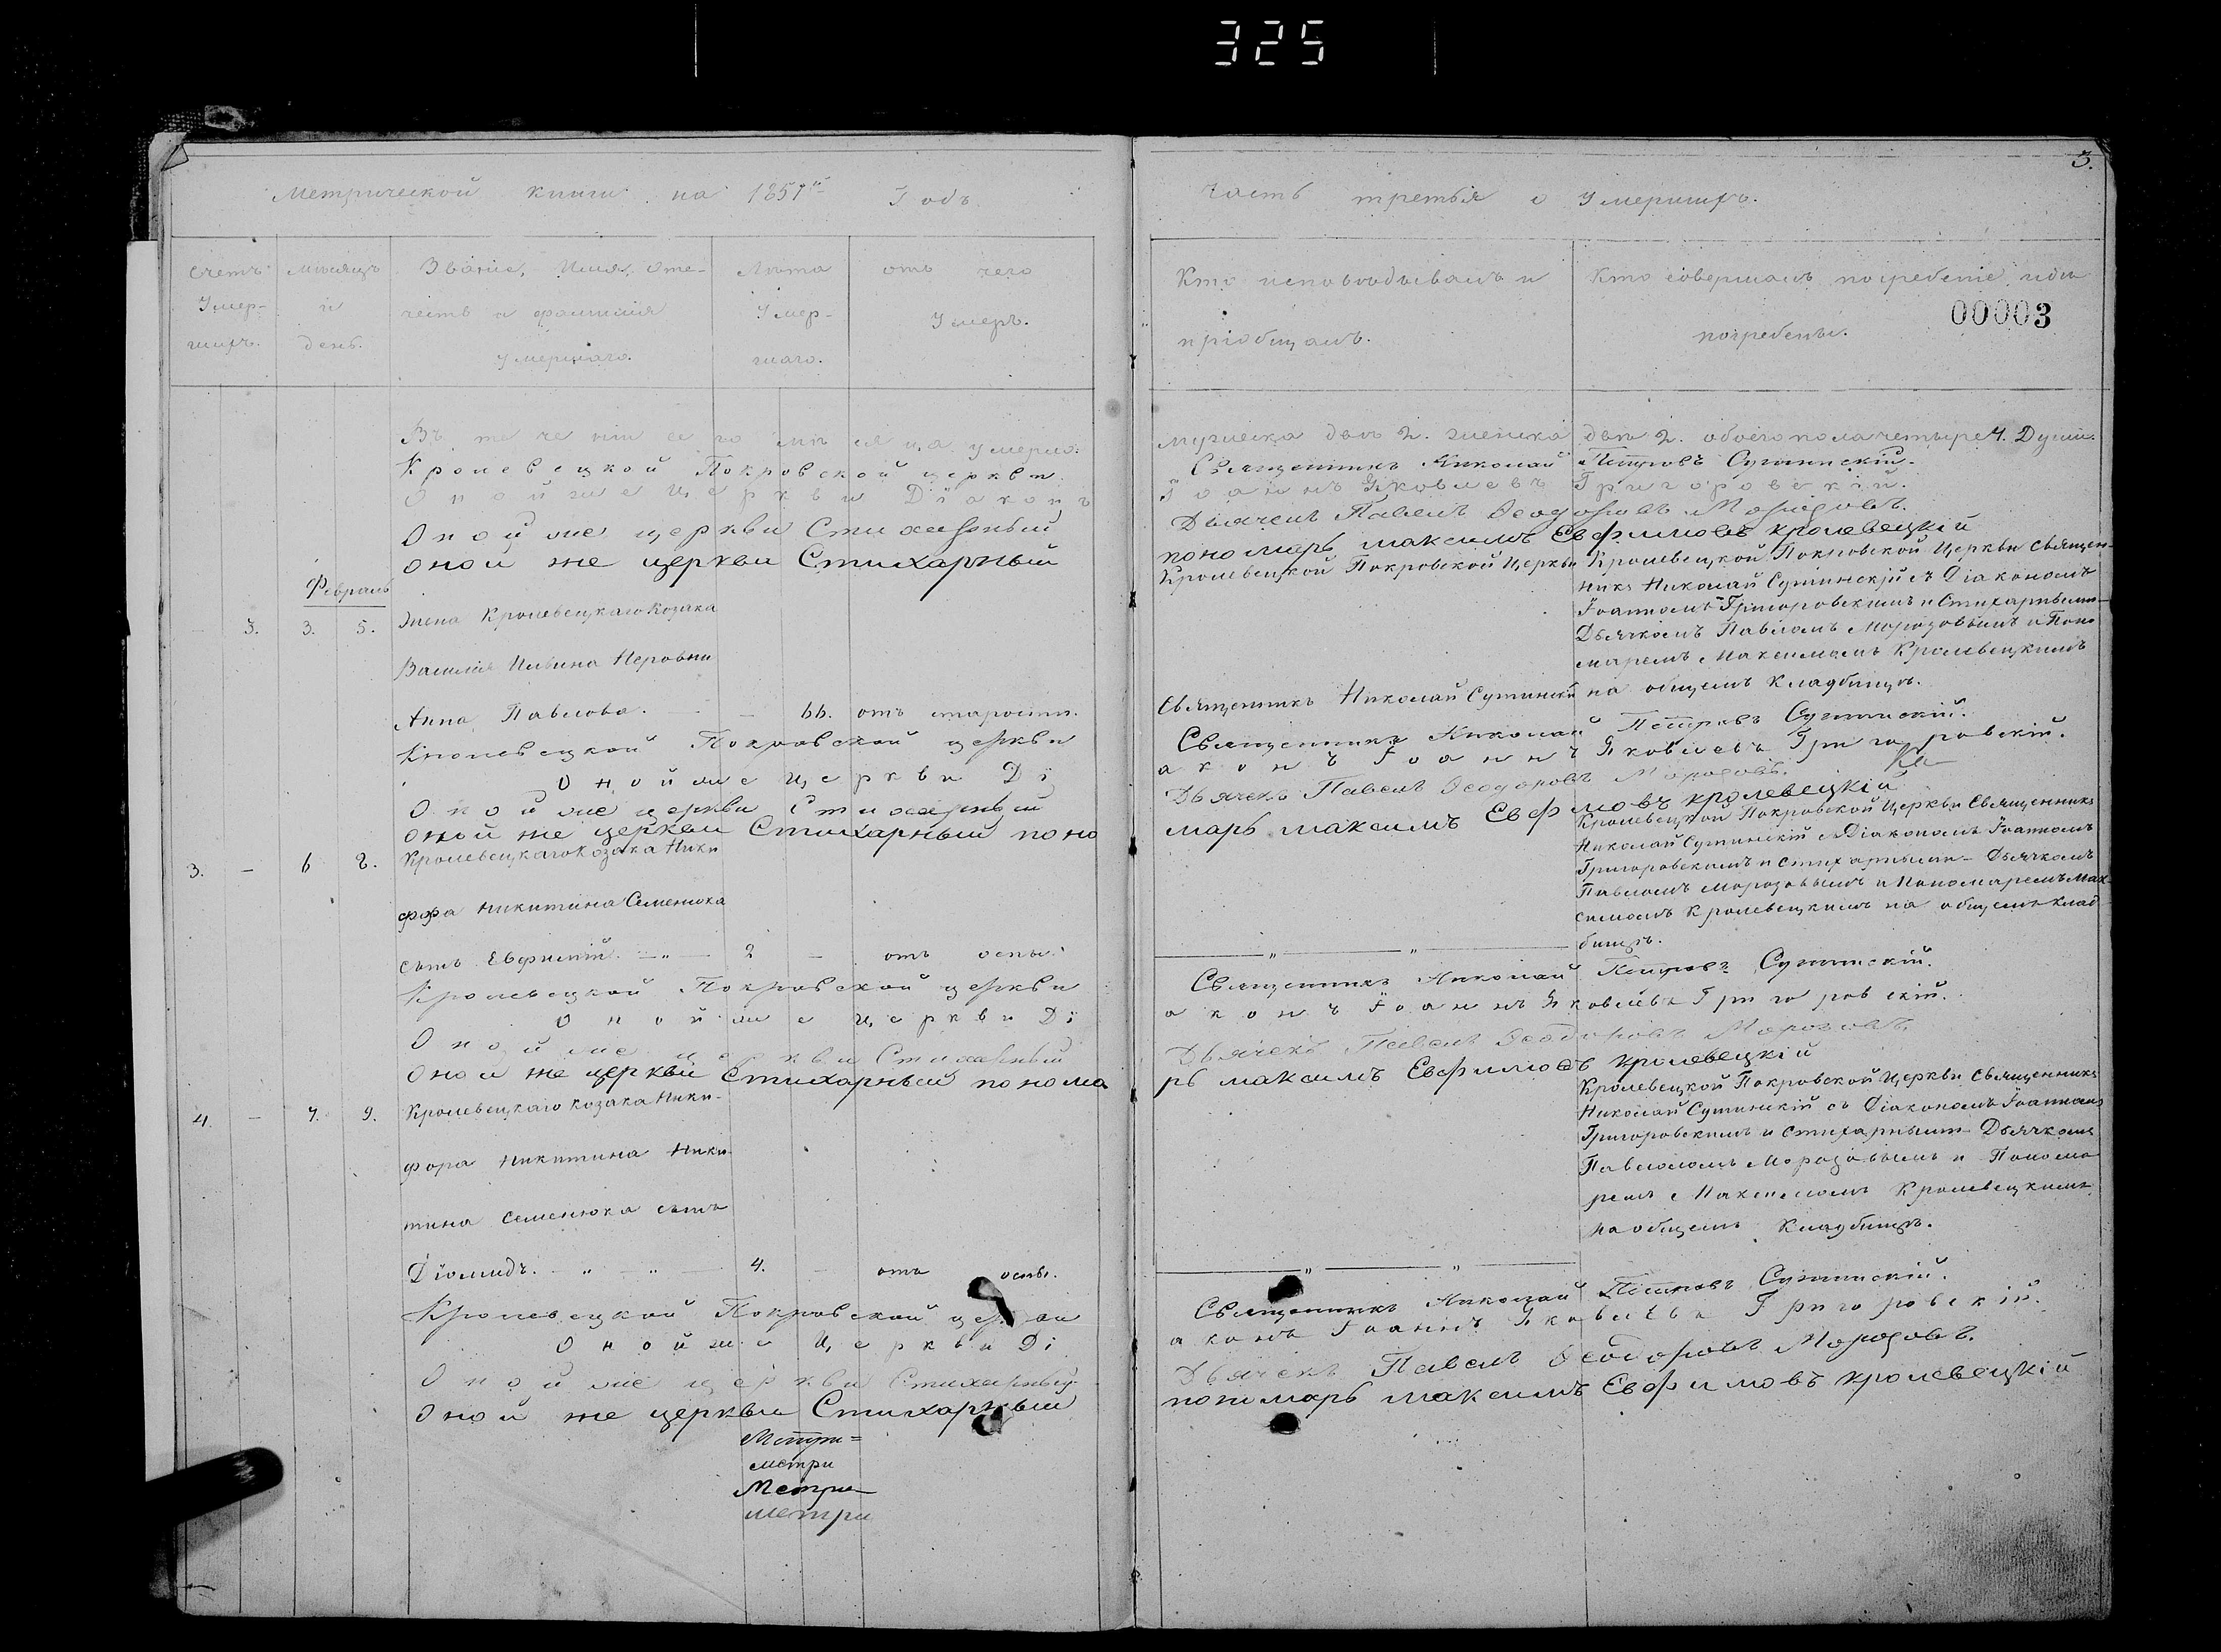 325
3.
Метрической книги на 1851й Годъ
часть третья о Умершихъ.
счетъ Умер-шихъ.
мѣсяцъ и день.
Званіе, Имя, Оте-
чество и фамилія
умершаго.
Лѣта Умер-шаго.
отъ чего
Умеръ.
Кто исповѣдывалъ и
пріобщалъ.
Кто совершалъ погребеніе, и гдѣ
погребены.
00003
Въ теченіи сего мѣсяца умерло: мужеска двѣ 2. женска двѣ 2. обоего пола четыре 4. Души.
Кролевецкой Покровской церкви Священникъ Николай Петровъ Сутинскій.
Оной же Церкви Діаконъ Іоаннъ Яковлевъ Григоровскій.
Оной же церкви Стихарный Дьячекъ Павелъ Ѳеодоровъ Морозовъ.
оной же церкви Стихарный пономарь максимъ Евфимовъ кролевецкій
Февраль
3. 3. 5. Жена Кролевецкаго Козака
Василія Неровни
Анна Павлова. 66. отъ старости.
Кролевецкой Покровской Церкви
Священникъ Николай Сутинскій
Кролевецкой Покровской Церкви Священ-
никъ Николай Сутинскій съ Діакономъ
Іоанномъ Григоровскимъ и Стихарными
Дьячкомъ Павломъ Морозовымъ и Поно-
маремъ Максимомъ Кролевецкимъ
на общемъ Кладбищѣ.
Кролевецкой Покровской церкви Священникъ Николай Петровъ Сутинскій.
Оной же Церкви Діаконъ Іоаннъ Яковлевъ Григоровскій.
Оной же церкви Стихарный Дьячекъ Павелъ Ѳеодоровъ Морозовъ.
оной же церкви Стихарный пономарь максимъ Евфимовъ кролевецкій
3. - 6 8. Кролевецкаго Козака Ники
фора Никитина Семенюка
сынъ Евфимій. 2 - отъ оспы.
Кролевецкой Покровской Церкви Священникъ
Николай Сутинскій съ Діакономъ Іоанномъ
Григоровскимъ и стихарными Дьячкомъ
Павломъ Морозовымъ и Пономаремъ Мак-
симомъ Кролевецкимъ на общемъ клад-
бищѣ.
Кролевецкой Покровской церкви Священникъ Николай Петровъ Сутинскій.
Оной же Церкви Діаконъ Іоаннъ Яковлевъ Григоровскій.
Оной же церкви Стихарный Дьячекъ Павелъ Ѳеодоровъ Морозовъ.
оной же церкви Стихарный пономарь максимъ Евфимовъ кролевецкій
4. - 7. 9. Кролевецкаго Козака Ники-
фора Никитина Ники-
тина Семенюка сынъ
Діомидъ. 4. - отъ оспы.
Кролевецкой Покровской Церкви Священникъ
Николай Сутинскій съ Діакономъ Іоанномъ
Григоровскимъ и стихарными Дьячкомъ
Павломъ Морозовымъ и Понома
ремъ Максимомъ Кролевецкимъ
на общемъ Кладбищѣ.
Кролевецкой Покровской церкви Священникъ Николай Петровъ Сутинскій.
Оной же Церкви Діаконъ Іоаннъ Яковлевъ Григоровскій.
Оной же церкви Стихарный Дьячекъ Павелъ Ѳеодоровъ Морозовъ.
Оной же церкви Стихарный пономарь максимъ Евфимовъ кролевецкій
Метри=
метри
Метри
метри